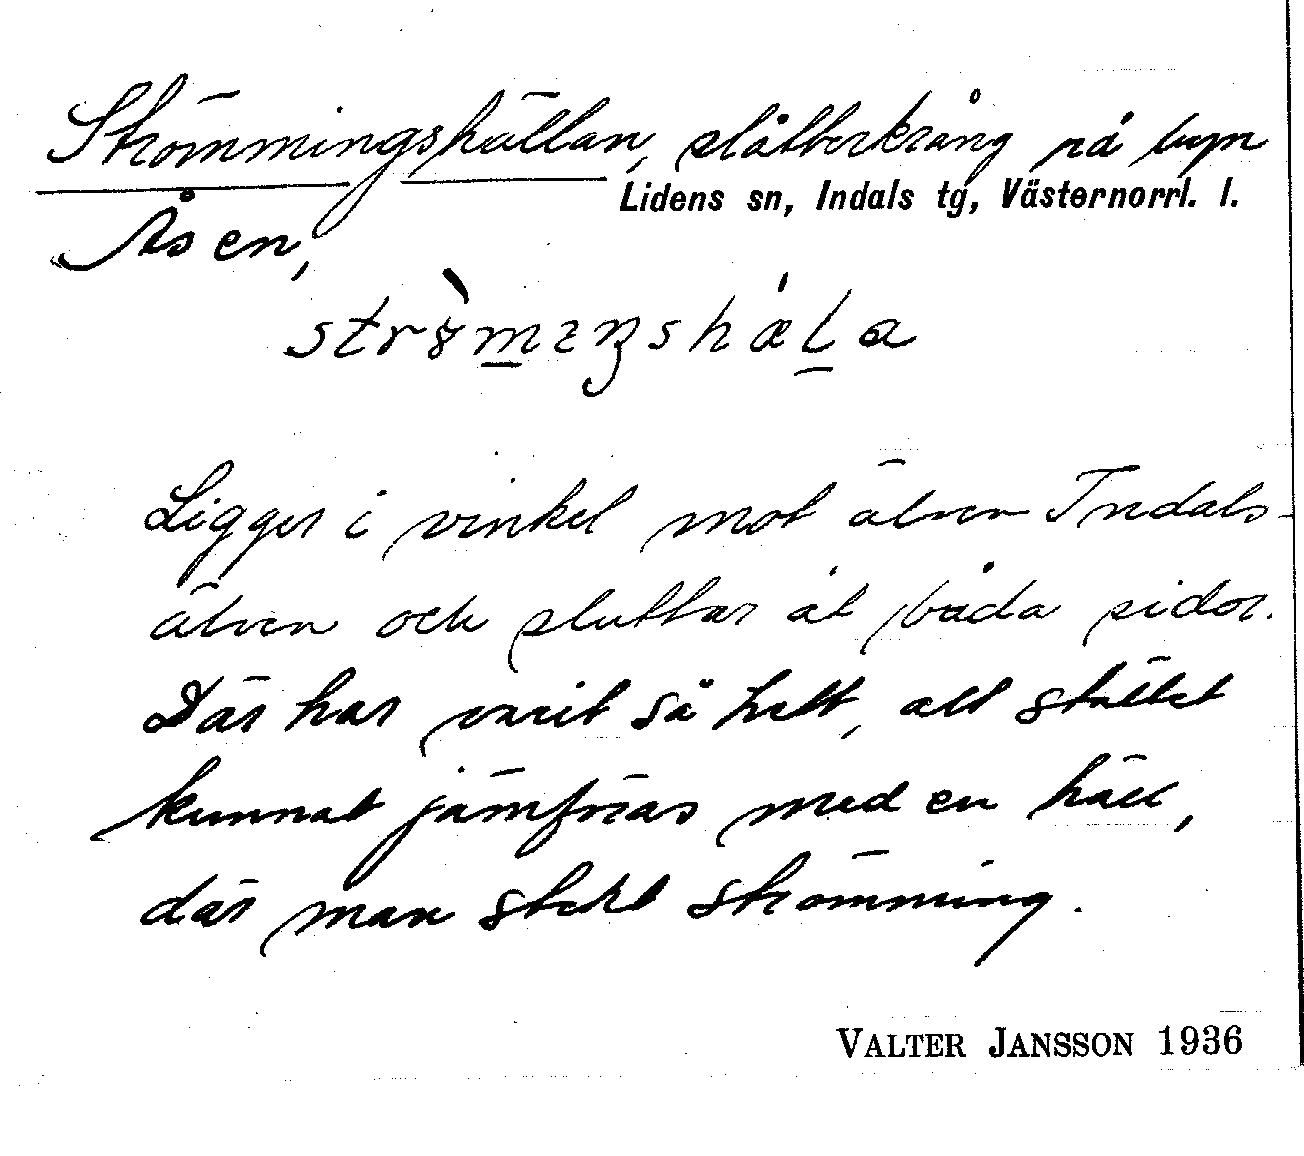 Strömmingshällan, slåtterkrång på byn
Lidens sn, Indals tg, Västernorrl. l.
Åsen,
Ligger i vinkel mot älven Indals-
älven och sluttar åt båda sidor.
Där har varit så hett, att stället
kunnat jämföras med en häll,
där man stekt strömming.
VALTER JANSSON 1936